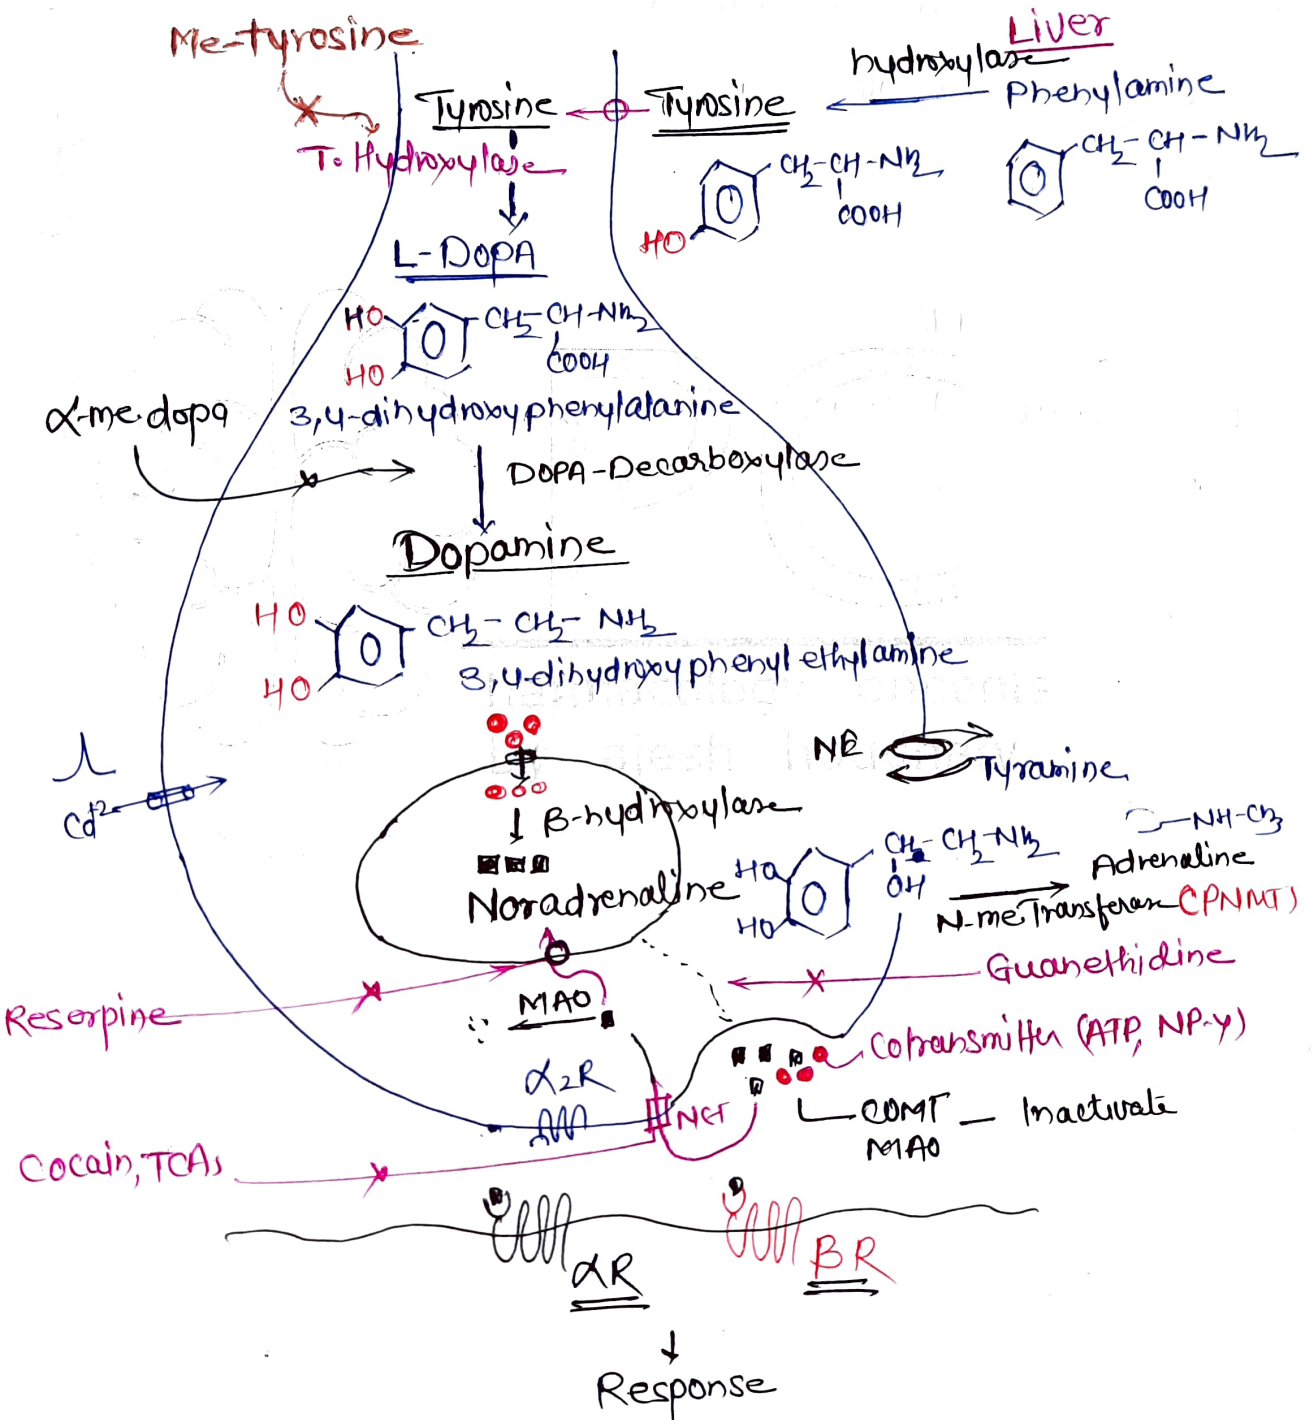 Me-tyrosine
Liver
hydroxylase
Phenylamine
Tyrosine
Tyrosine
T. Hydroxylase
CH2-CH-NH2
COOH
HO
CH2-CH-NH2
COOH
L-DOPA
HO
CH2-CH-NH2
COOH
HO
α-me.dopa
3,4-dihydroxyphenylalanine
DOPA-Decarboxylase
Dopamine
HO
CH2-CH2-NH2
HO
3,4-dihydroxyphenyl ethylamine
NE
Tyramine
Cd+2
β-hydroxylase
Noradrenaline
HO
HO
CH-CH2-NH2
OH
-NH-CH3
Adrenaline
N-me Transferase (PNMT)
Guanethidine
Reserpine
MAO
Cotransmitter (ATP, NP-y)
α2R
NET
COMT - Inactivate
MAO
Cocain, TCAs
αR
βR
Response